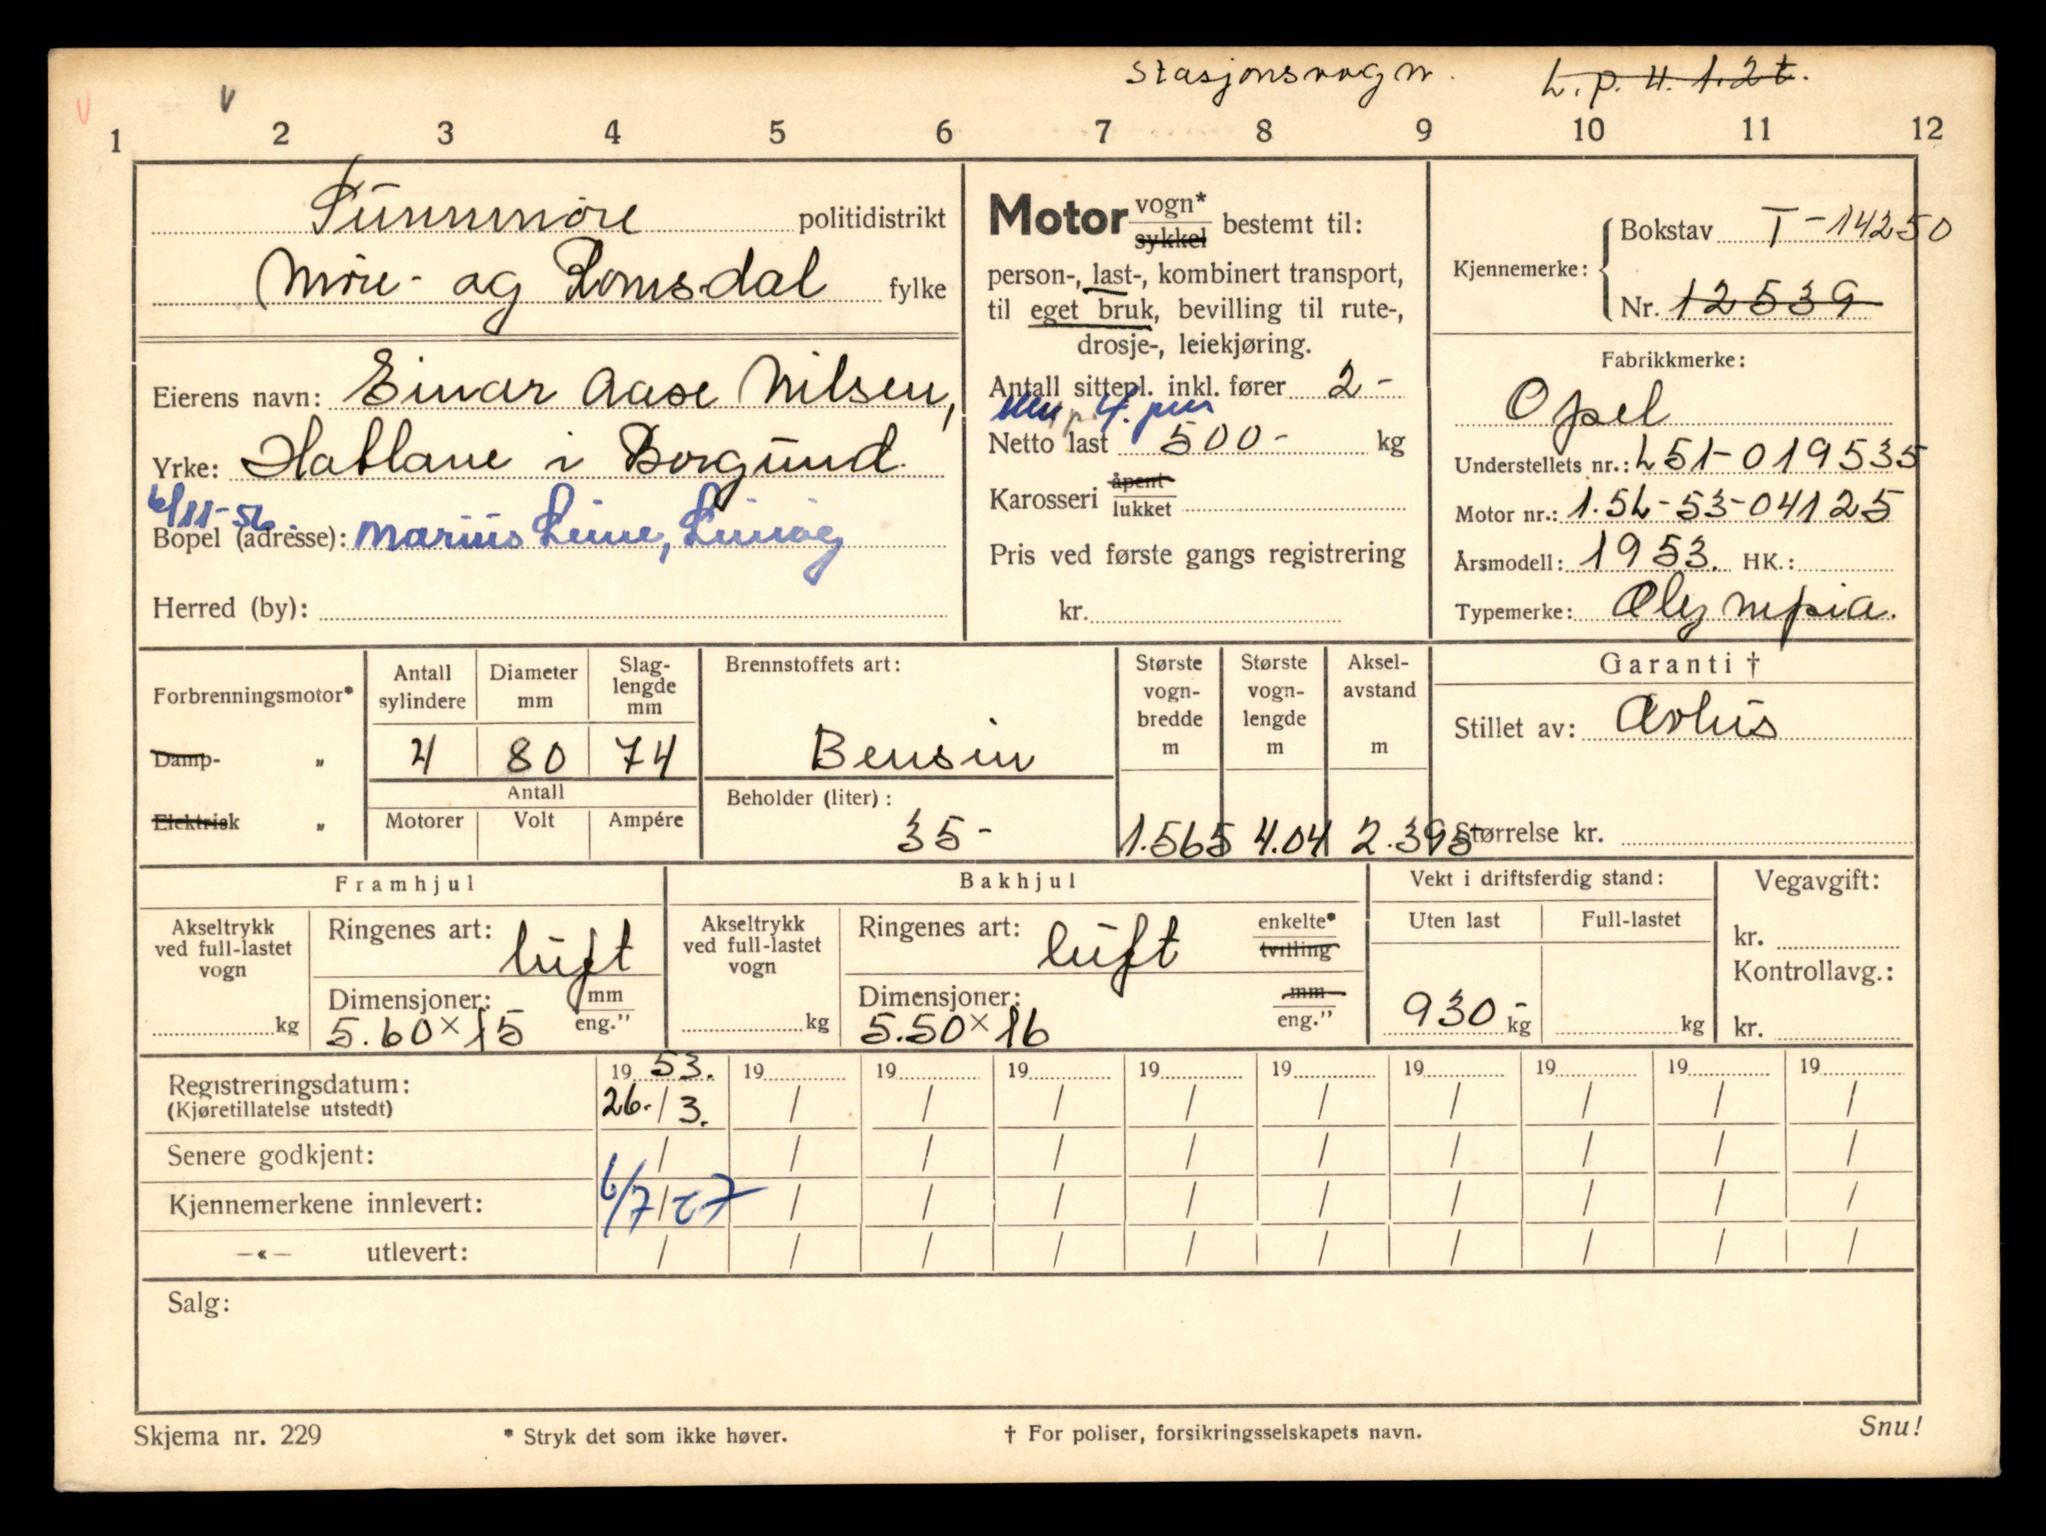 Stasjonsvogn. L.p.u. 1.2t.
1 2 3 4 5 6 7 8 9 10 11 12
Sunnmøre politidistrikt
Møre- og Romsdal fylke
Eierens navn: Einar Aase Nilsen,
Yrke: Hatlane i Borgund.
6/11-56
Bopel (adresse): Marius Leine, Leinøy
Herred (by):
Motor vogn* sykkel bestemt til:
person-, last-, kombinert transport,
til eget bruk, bevilling til rute-,
drosje-, leiekjøring.
Antall sittepl. inkl. fører 2-
4. pers
Netto last 500- kg
Karosseri åpent lukket
Pris ved første gangs registrering
kr.
Kjennemerke: Bokstav T-14250
Nr. 12539
Fabrikkmerke:
Opel
Understellets nr.: L51-019535
Motor nr.: 1.5L-53-04125
Årsmodell: 1953. HK.:
Typemerke: Olympia.
Forbrenningsmotor*
Damp- „
Elektrisk „
Antall sylindere
Diameter mm
Slag-lengde mm
4 80 74
Antall
Motorer Volt Ampére
Brennstoffets art:
Bensin
Beholder (liter):
35-
Største vogn-bredde m
1.565
Største vogn-lengde m
4.04
Aksel-avstand m
2.395
Garanti †
Stillet av: Avhus
Størrelse kr.
Framhjul
Akseltrykk ved full-lastet vogn
kg
Ringenes art: luft
Dimensjoner: mm eng."
5.60×15
Bakhjul
Akseltrykk ved full-lastet vogn
kg
Ringenes art: luft enkelte* tvilling
Dimensjoner: mm eng."
5.50×16
Vekt i driftsferdig stand:
Uten last Full-lastet
930- kg kg
Vegavgift:
kr.
Kontrollavg.:
kr.
Registreringsdatum: 19 53. 19 19 19 19 19 19 19 19 19
(Kjøretillatelse utstedt) 26. / 3. / / / / / / / / /
Senere godkjent: / / / / / / / / / /
Kjennemerkene innlevert: 6/7 / 57 / / / / / / / / /
—«— utlevert: / / / / / / / / / /
Salg:
Skjema nr. 229 * Stryk det som ikke høver. † For poliser, forsikringsselskapets navn. Snu!